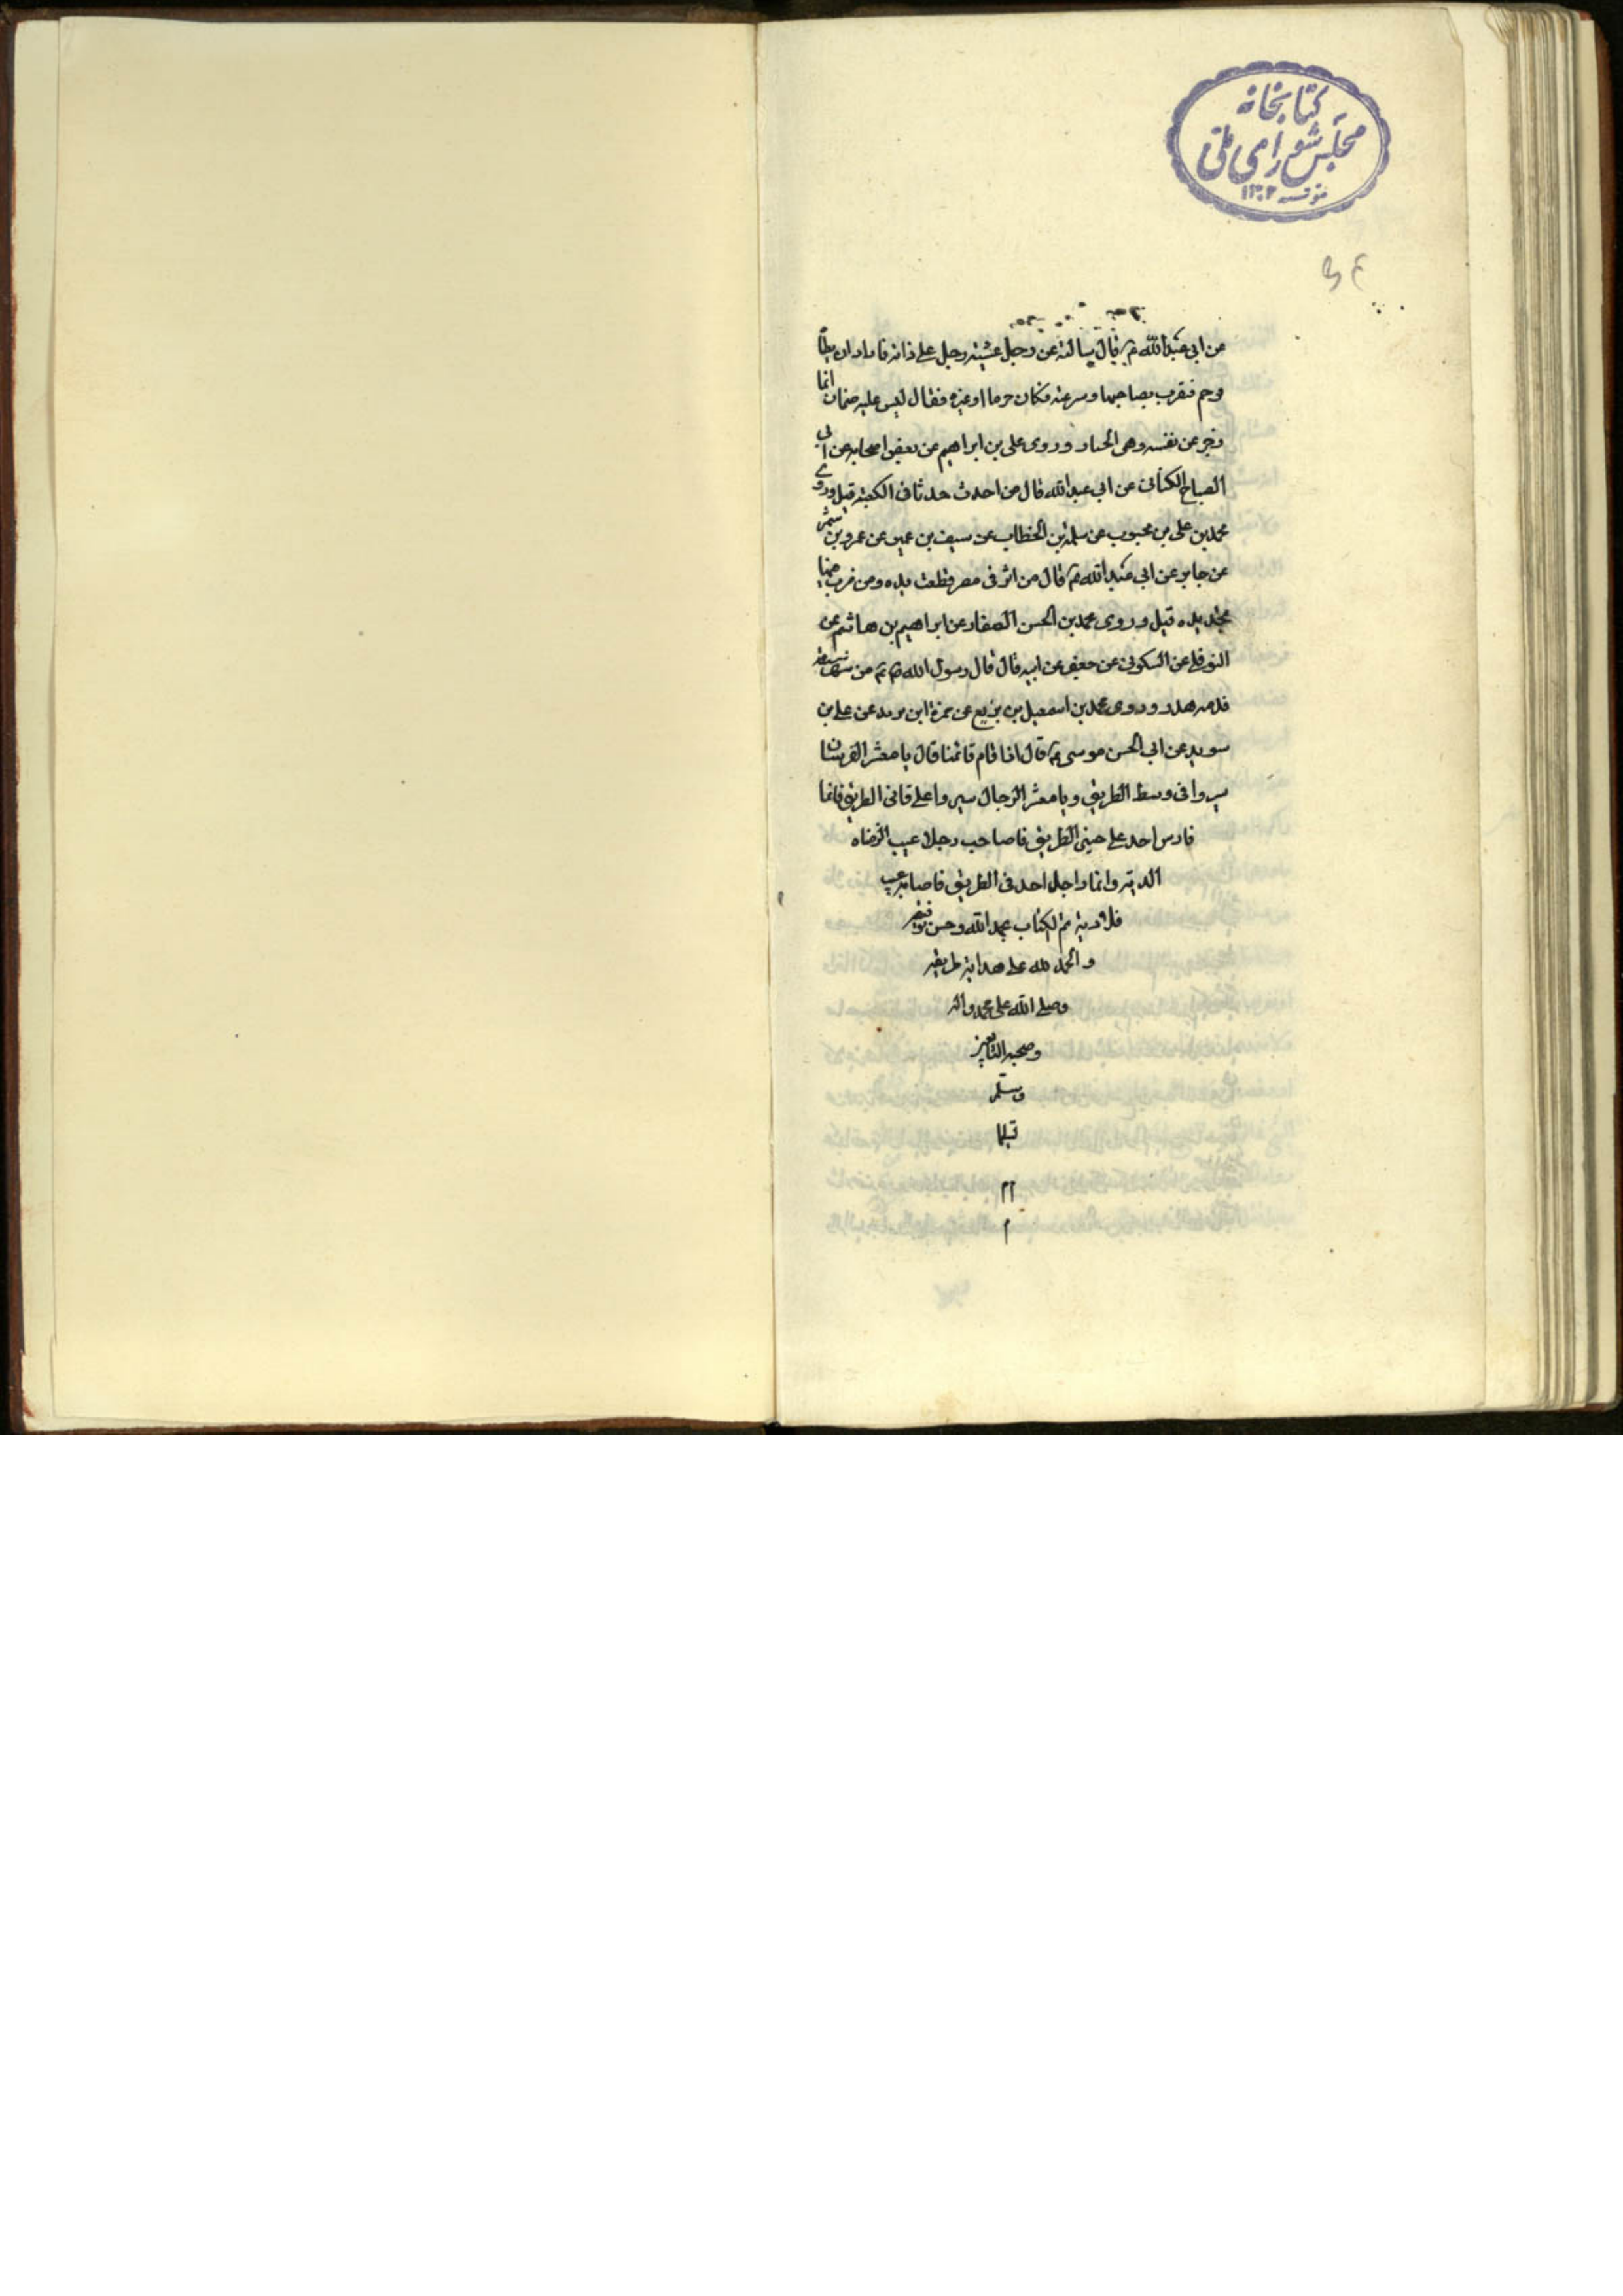 كتابخانه
مجلس شورای ملی
عن ابی عبد الله ع قال سالته عن رجل غشیه رجل علی دابة فاراد ان یطا
وجم فنقرب بصاحبها وسرعته فكان حرما او غیره فقال لیس علیه ضمان انما
زجر عن نفسه وهی الجبار وروی علی بن ابراهیم عن بعض اصحابه عن ابی
الصباح الكنانی عن ابی عبد الله قال من احدث حدثا فی الكعبة قتل وروی
محمد بن علی بن محبوب عن سلمة بن الخطاب عن سیف بن عمیر عن عمرو بن شمر
عن جابر عن ابی عبد الله ع قال من اثر فی مصر قطعت یده ومن ضرب
یده قتل وروی محمد بن الحسن الصفار عن ابراهیم بن هاشم عن
النوفلی عن السكونی عن جعفر عن ابیه قال قال رسول الله ص من شهر سیفه
فدمه هدر وروی محمد بن اسمعیل بن بزیع عن حمزة ابن برید عن علی بن
سوید عن ابی الحسن موسی ع قال اذا قام قائمنا قال یا معشر الفرسان
سیروا فی وسط الطریق ویا معشر الرجال سیروا علی الطریق فایما
فارس احد علی الطریق فاصاحب رجلا عیب الزمناه
الدیة وایما راجل احد فی الطریق فاصابه عیب
فلا دیة تم الكتاب بحمد الله وحسن توفیقه
والحمد لله علی هدایة طریقه
وصلی الله علی محمد واله
وصحبه التابعین
وسلم
م م
م